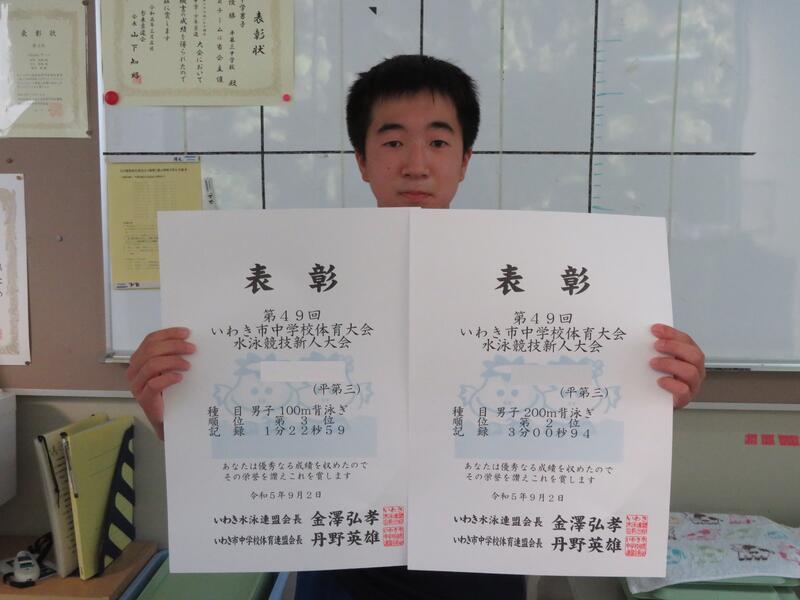 表彰状
学男子
平第三中学校 殿
大会において
の成績を得られたので
に賞します
令和五年三月五日
会長 山下知昭
表彰状
表彰
第49回
いわき市中学校体育大会
水泳競技新人大会
(平第三)
種目 男子100m背泳ぎ
順位 第3位
記録 1分22秒59
あなたは優秀なる成績を収めたので
その栄誉を讃えこれを賞します
令和5年9月2日
いわき水泳連盟会長 金澤弘孝
いわき市中学校体育連盟会長 丹野英雄
表彰
第49回
いわき市中学校体育大会
水泳競技新人大会
(平第三)
種目 男子200m背泳ぎ
順位 第2位
記録 3分00秒94
あなたは優秀なる成績を収めたので
その栄誉を讃えこれを賞します
令和5年9月2日
いわき水泳連盟会長 金澤弘孝
いわき市中学校体育連盟会長 丹野英雄